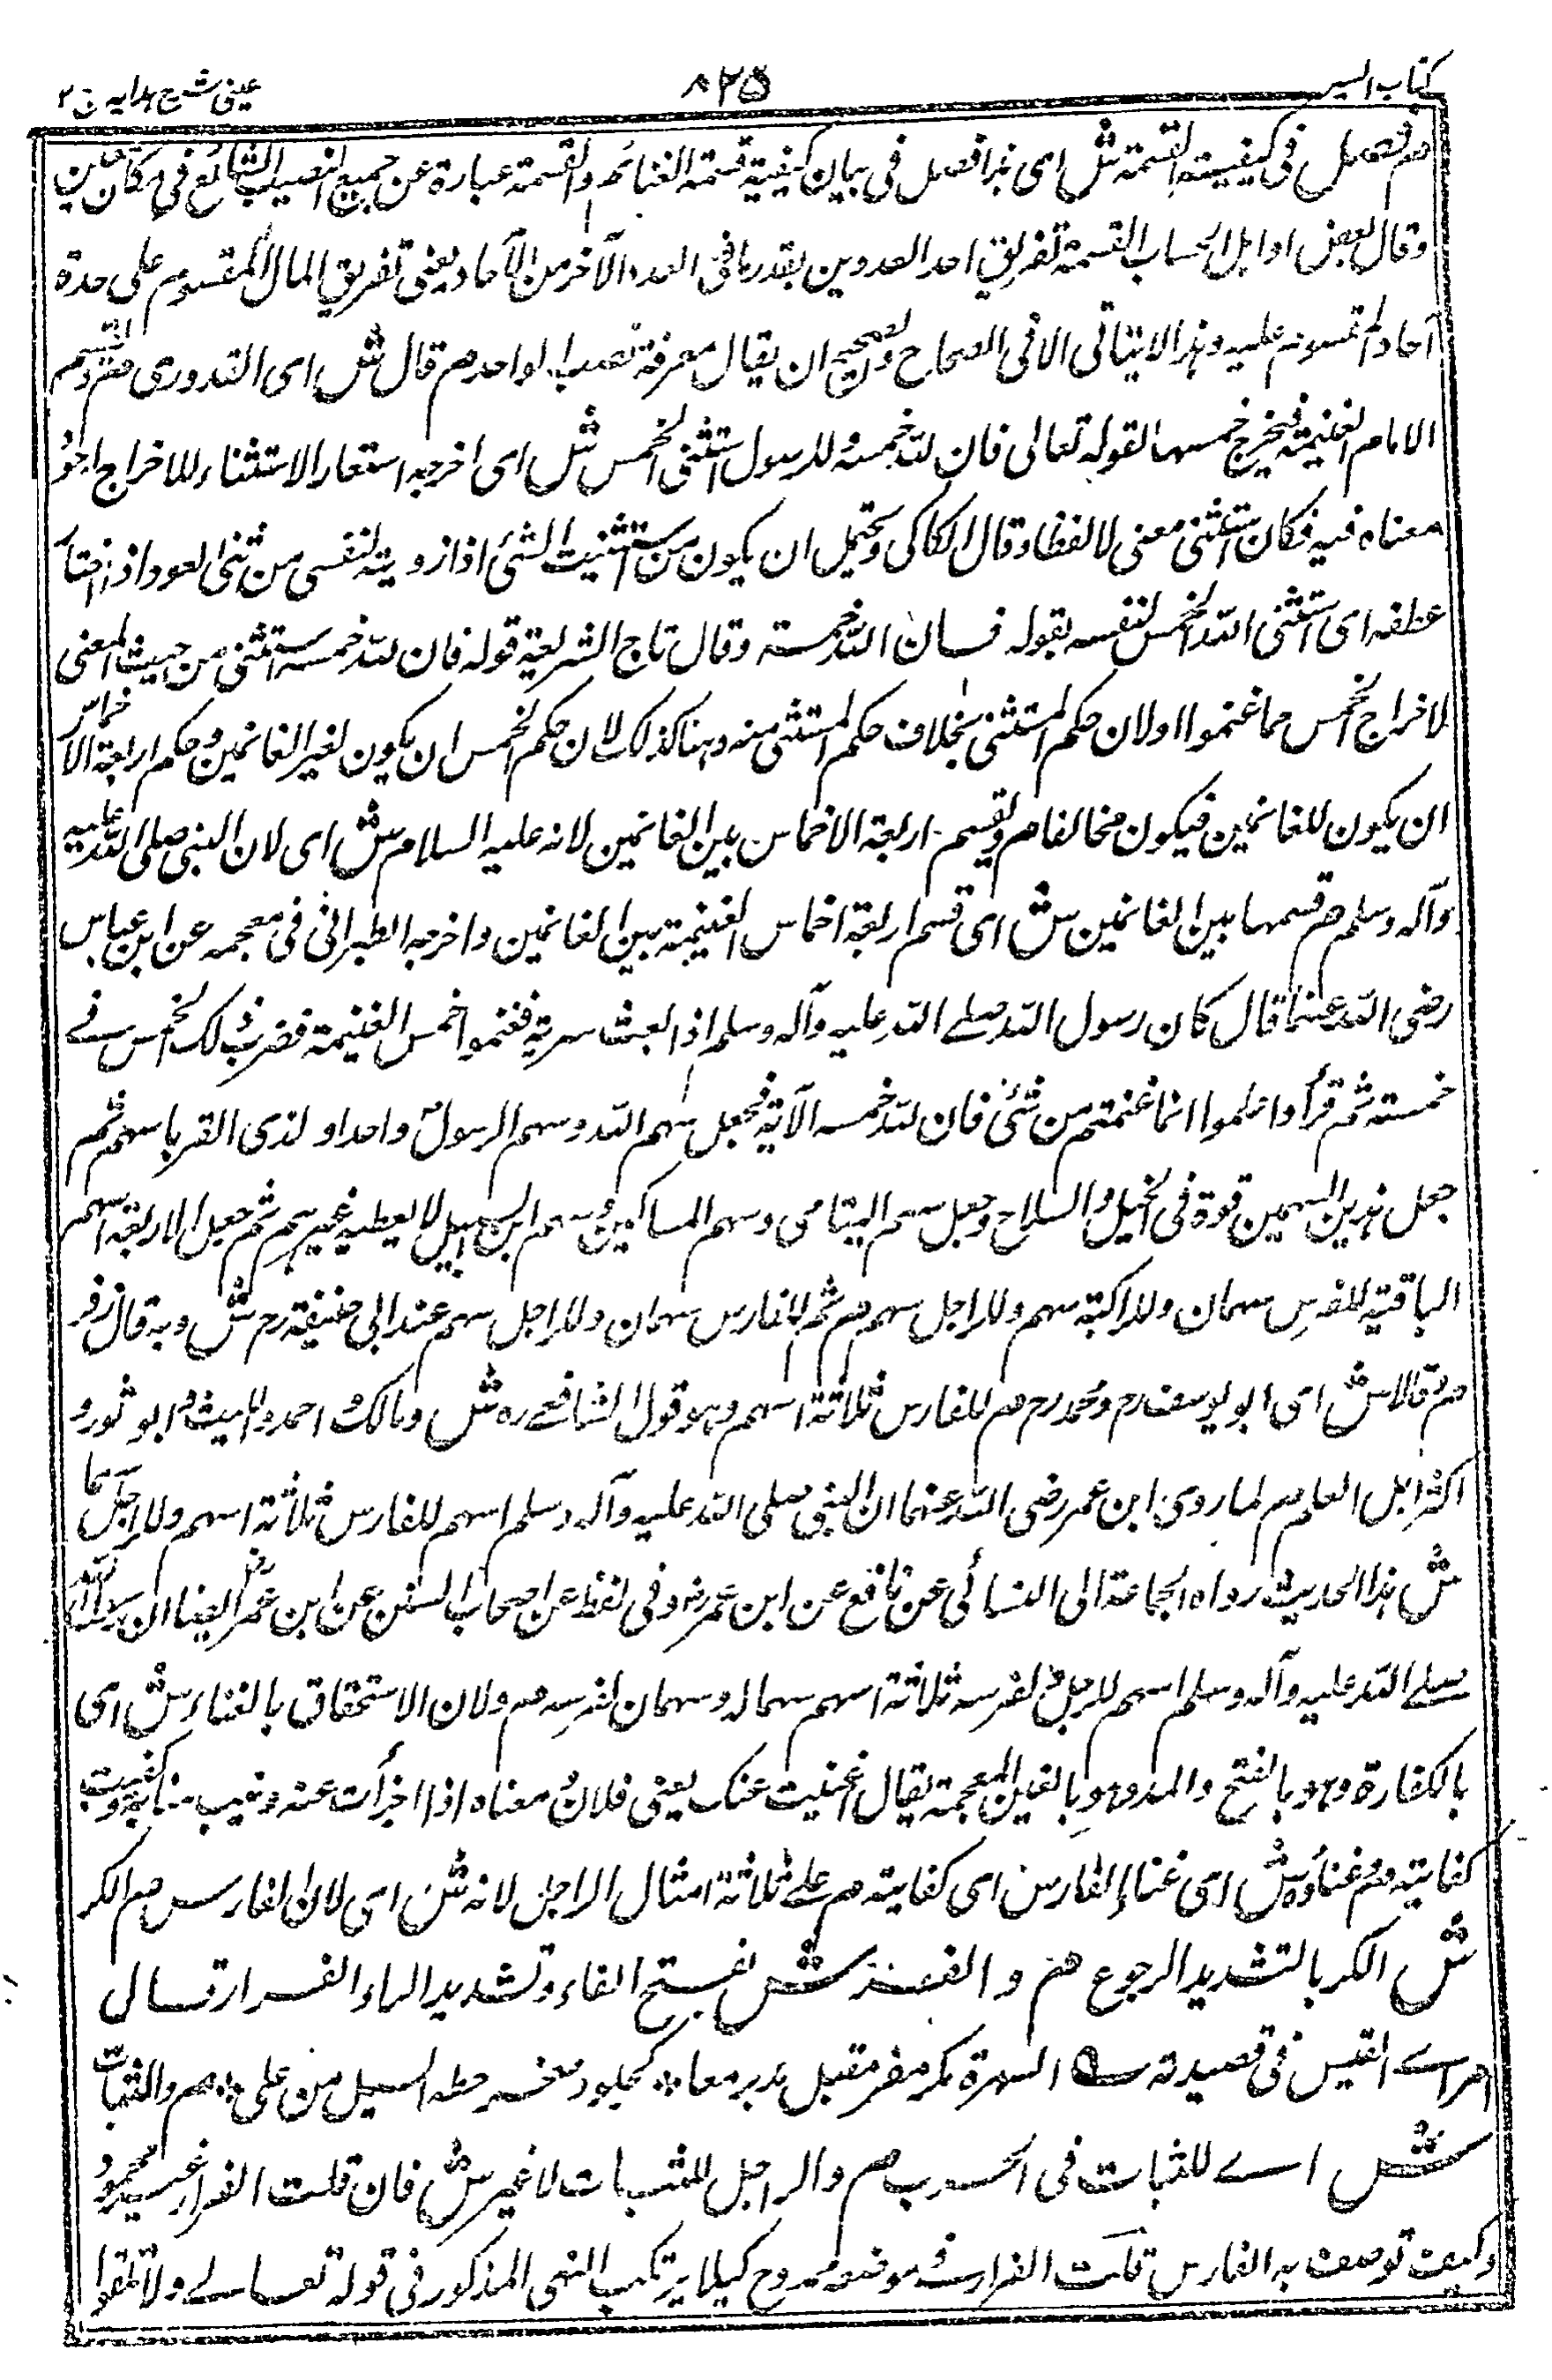 كتاب السير ٨٢٥ عینی شرح ہدایہ ج ٢
م فصل فی کیفیة القسمة ش ای ہذا فصل فی بیان کیفیة قسمة الغنائم والقسمة عبارة عن جمیع النصیب الشائع فی مکان معین
وقال بعض اوایل الحساب القسمة تفریق احد العددین بقدر ما فی العدد الآخر من الآحاد یعنی تفریق المال المقسوم علی حدة
آحاد المقسوم علیه وہذا لا یتاتی الا فی الصحاح والصحیح ان یقال معرفة نصیب الواحد م قال ش ای القدوری م ویقسم
الامام الغنیمة فیخرج خمسها لقوله تعالی فان لله خمسه وللرسول استثنی الخمس ش ای اخرجه استعار الاستثناء للاخراج لوجود
معناه فیه فکان استثنی معنی لا لفظا وقال الکاکی ویحتمل ان یکون من استثنیت الشئ اذا زویته لنفسی من ثنی العود اذا
عطفه ای استثنی الله الخمس لنفسه بقوله فان لله خمسه وقال تاج الشریعة قوله فان لله خمسه استثنی من حیث المعنی
لاخراج الخمس مما غنموا اولان حکم المستثنی بخلاف حکم المستثنی منه وہنا کذلک لان حکم الخمس ان یکون لغیر الغانمین وحکم اربعة الاخماس
ان یکون للغانمین فیکون مخالفا م ویقسم اربعة الاخماس بین الغانمین لانه علیه السلام ش ای لان النبی صلی الله علیه
وآله وسلم م قسمها بین الغانمین ش ای قسم اربعة اخماس الغنیمة بین الغانمین واخرجه الطبرانی فی معجمه عن ابن عباس
رضی الله عنهما قال کان رسول الله صلے الله علیه وآله وسلم اذا بعث سریة فغنموا خمس الغنیمة فضرب ذلک الخمس فے
خمسة ثم قرأ واعلموا انما غنمتم من شئ فان لله خمسه الآیة فجعل سهم الله وسهم الرسول واحدا ولذی القربی سهم ثم
جعل ہذین السهمین قوة فی الخیل والسلاح وجعل سهم الیتامی وسهم المساکین وسهم ابن السبیل لا یعطیه غیرہم ثم جعل الاربعة اسهم
الباقیة للفرس سهمان ولراکبه سهم وللراجل سهم م ثم للفارس سهمان وللراجل سهم عند ابی حنیفة رح ش وبه قال زفر
م وقالا ش ای ابو یوسف رح ومحمد رح م للفارس ثلاثة اسهم وہو قول الشافعے ره ش ومالک و احمد واللیث و ابو ثور و
اکثر اہل العلم م لما روی ابن عمر رضی الله عنهما ان النبی صلی الله علیه وآله وسلم اسهم للفارس ثلاثة اسهم وللراجل سهما
ش ہذا الحدیث رواه الجماعة الی النسائی عن نافع عن ابن عمر رض وفی لفظ عن اصحاب السنن عن ابن عمر ایضا ان رسول الله
صلے الله علیه وآله وسلم اسهم للرجل ولفرسه ثلاثة اسهم سهما له وسهمان لفرسه م ولان الاستحقاق بالغناء ش ای
بالکفایة وہو بالفتح والمد وہو بالغین المعجمة یقال اغنیت عنک یعنی فلان معناه اذا اجزأت عنه ونیب منابه وکفیت
کفایته م وغناؤه ش ای غناء الفارس ای کفایته م علے ثلاثة امثال الراجل لانه ش ای لان الفارس م للکر
ش الکر بالتشدید الرجوع م والفر ش بفتح الفاء وتشدید الراء الفرار قال
امراے القیس فی قصیدته مکر مفر مقبل مدبر معا * کجلمود صخر حطه السیل من علی * م والثبات
ش اے للثبات فی الحرب م والراجل للثبات لا غیر ش فان قلت الفرار غیر محمود
وکیف توصف به الفارس قلت الفرار فی موضعه ممدوح کیلا یرتکب النهی المذکور فی قوله تعالے ولا تلقوا